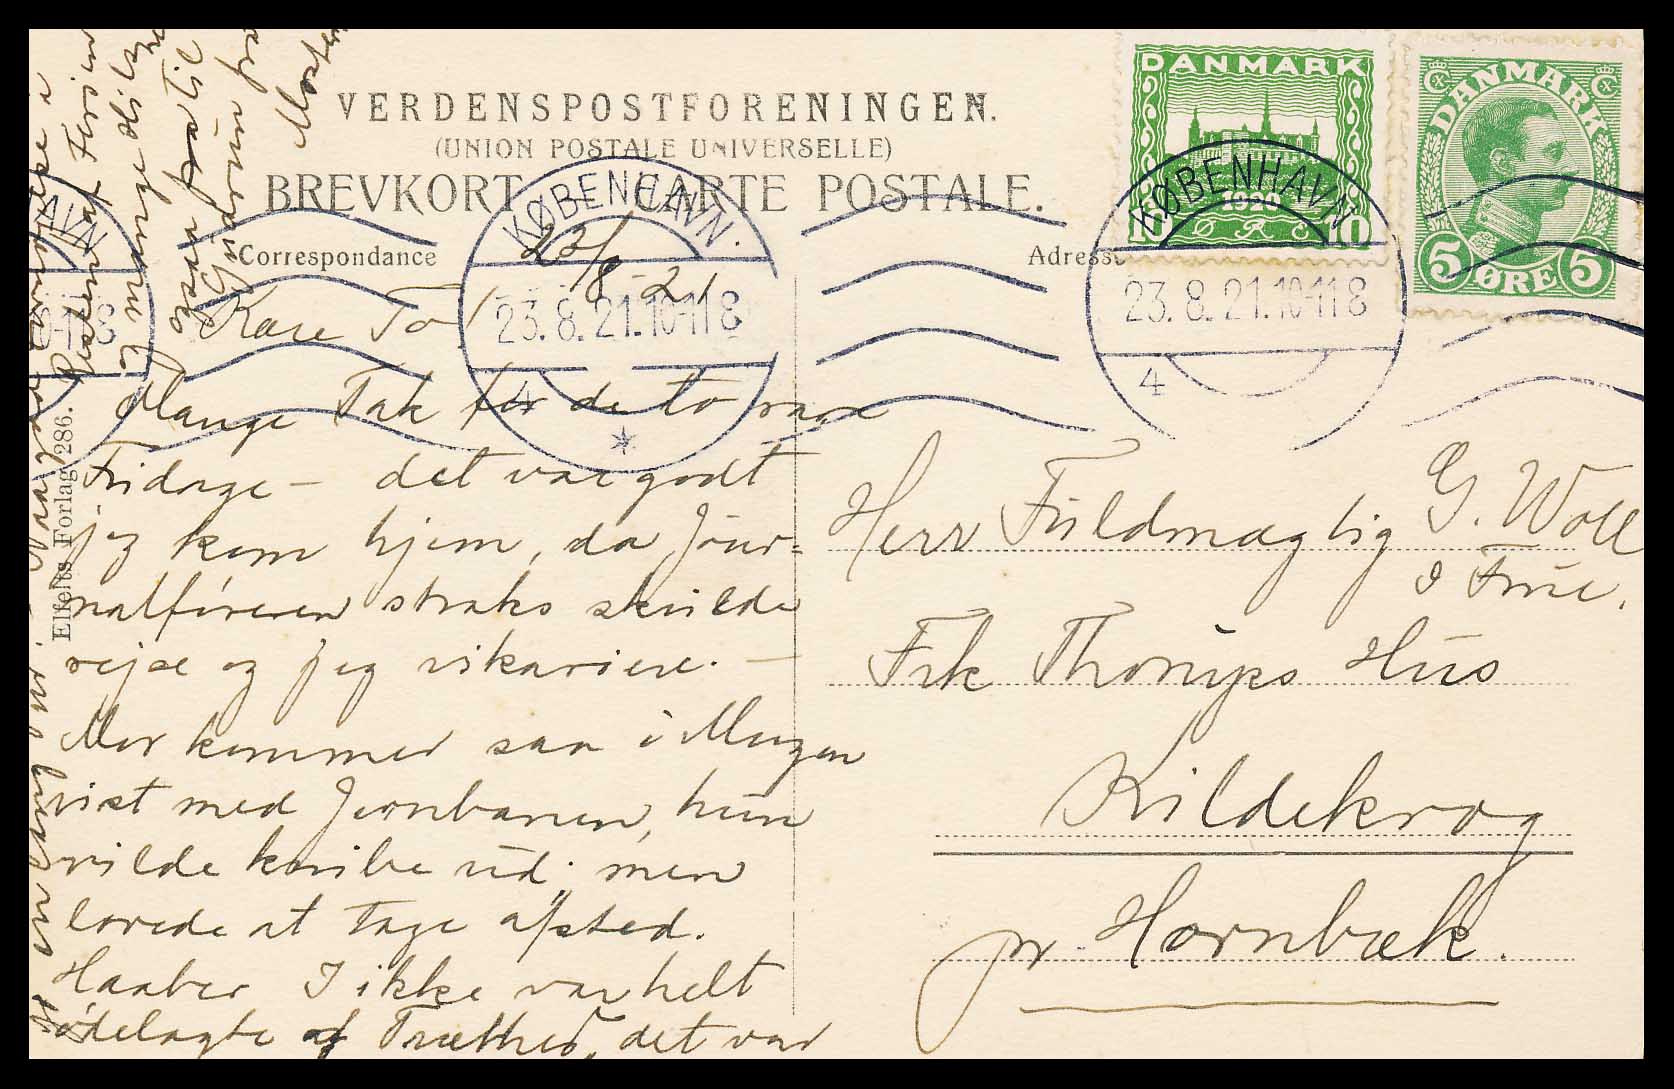 VERDENSPOSTFORENINGEN.
(UNION POSTALE UNIVERSELLE)
BREVKORT CARTE POSTALE.
Correspondance
Adresse
DANMARK
1920
10 ØRE 10
DANMARK
5 ØRE 5
KØBENHAVN.
23.8.21.10-11 8
4
KØBENHAVN
23.8.21.10-11 8
4
AVN
0-11 8
Elfelts Forlag 286.
23/8-21
Kære To!
Mange Tak for de to rare
Fridage – det var godt
jeg kom hjem, da Jour-
nalføreren straks skulde
rejse og jeg vikariere. –
Mor kommer saa i Morgen
vist med Jernbanen, hun
vilde knibe ud, men
lovede at tage afsted.
Haaber I ikke var helt
ødelagte af Træthed, det var
og mange Hilsner
ogsaa fra til
Moster
Herr Fuldmægtig G. Woll
& Frue.
Frk Thorups Hus
Kildekrog
pr Hornbæk.